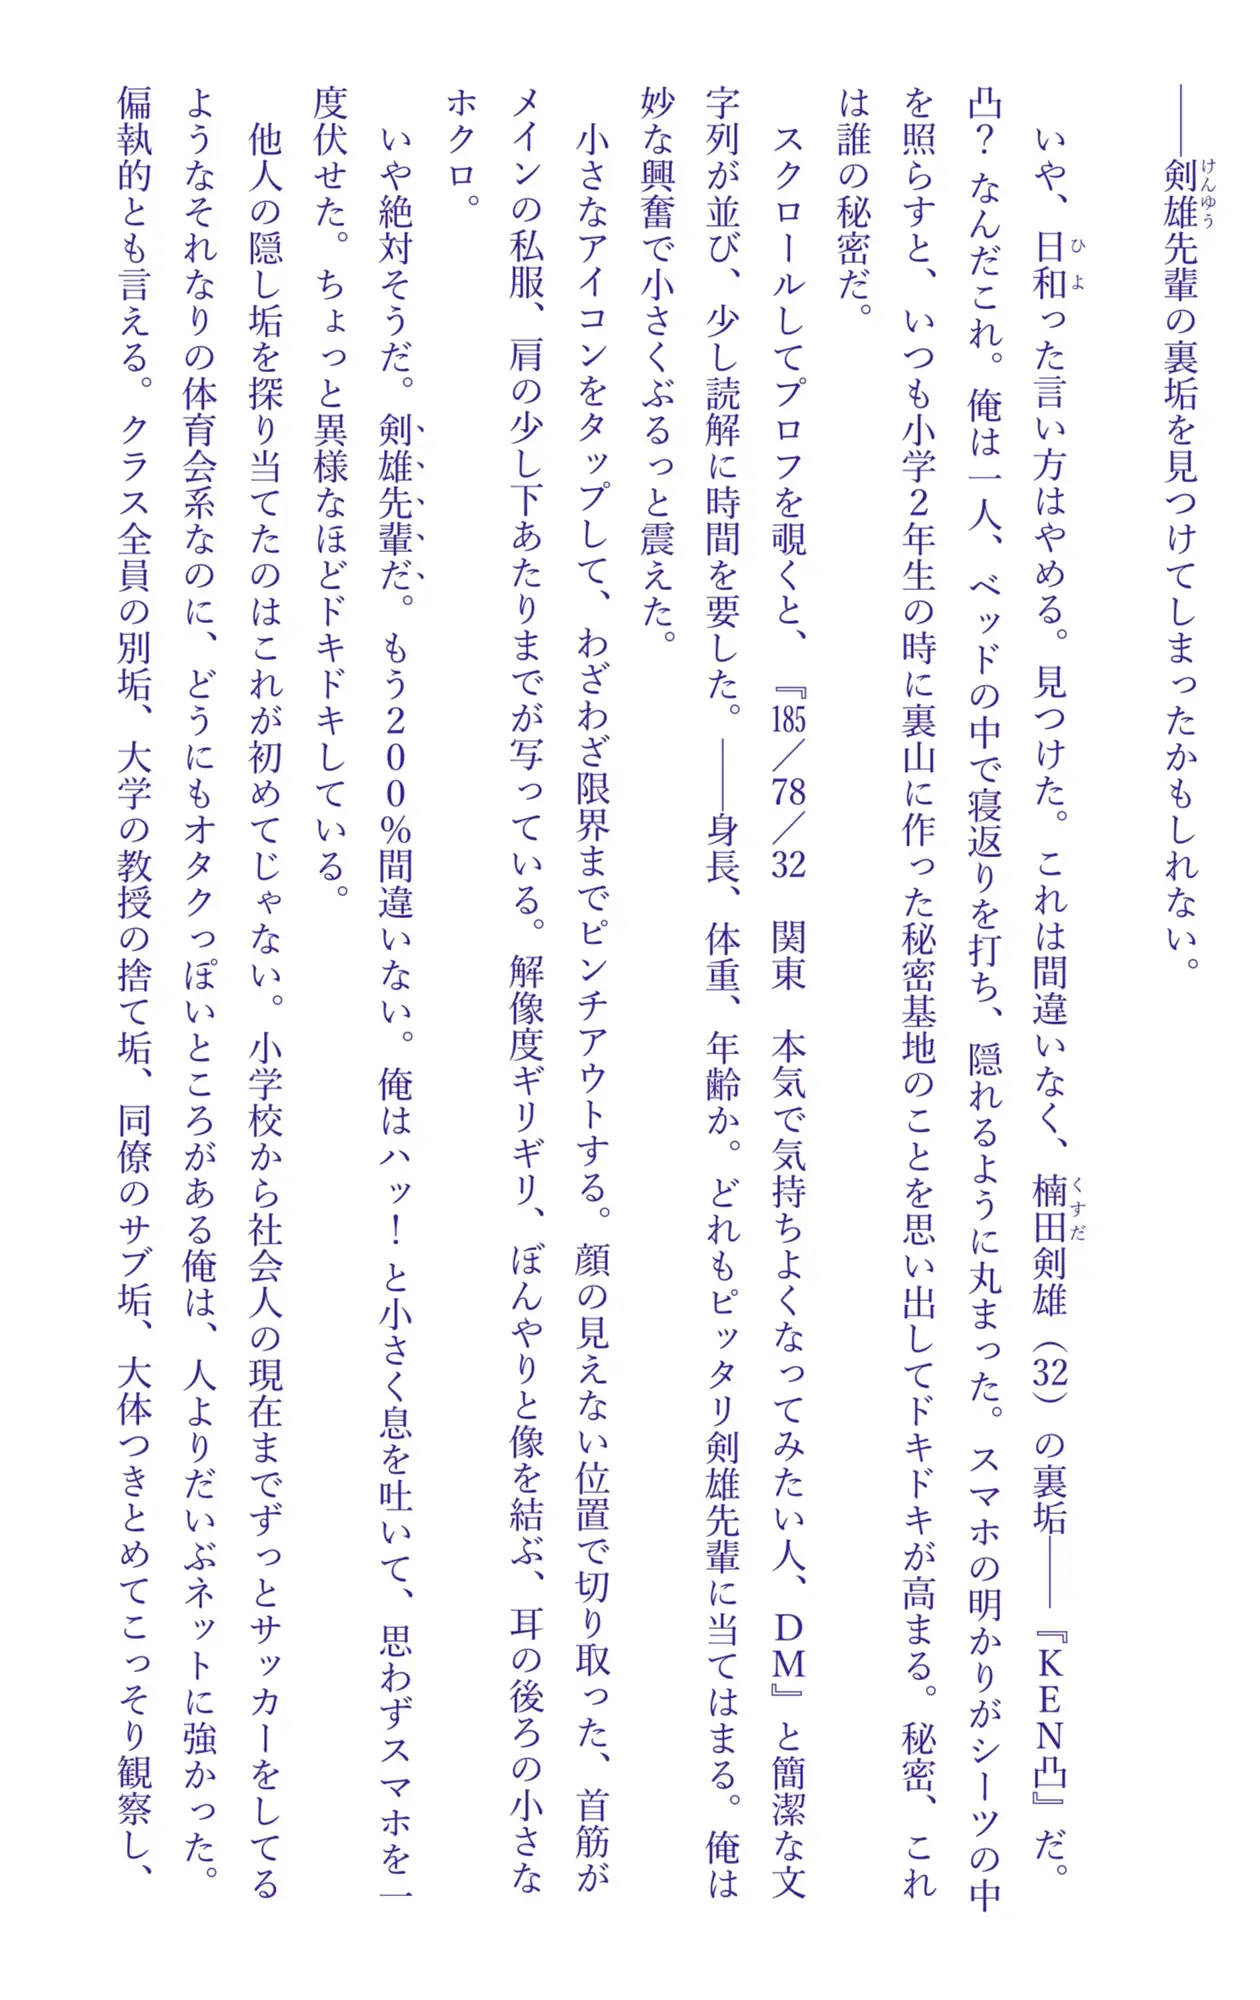 ――剣雄先輩の裏垢を見つけてしまったかもしれない。
いや、日和った言い方はやめる。見つけた。これは間違いなく、楠田剣雄（32）の裏垢――『ＫＥＮ凸』だ。
凸？ なんだこれ。俺は一人、ベッドの中で寝返りを打ち、隠れるように丸まった。スマホの明かりがシーツの中
を照らすと、いつも小学２年生の時に裏山に作った秘密基地のことを思い出してドキドキが高まる。秘密、これ
は誰の秘密だ。
スクロールしてプロフを覗くと、『185／78／32　関東　本気で気持ちよくなってみたい人、ＤＭ』と簡潔な文
字列が並び、少し読解に時間を要した。――身長、体重、年齢か。どれもピッタリ剣雄先輩に当てはまる。俺は
妙な興奮で小さくぶるっと震えた。
小さなアイコンをタップして、わざわざ限界までピンチアウトする。顔の見えない位置で切り取った、首筋が
メインの私服、肩の少し下あたりまでが写っている。解像度ギリギリ、ぼんやりと像を結ぶ、耳の後ろの小さな
ホクロ。
いや絶対そうだ。剣雄先輩だ。もう２００％間違いない。俺はハッ！ と小さく息を吐いて、思わずスマホを一
度伏せた。ちょっと異様なほどドキドキしている。
他人の隠し垢を探り当てたのはこれが初めてじゃない。小学校から社会人の現在までずっとサッカーをしてる
ようなそれなりの体育会系なのに、どうにもオタクっぽいところがある俺は、人よりだいぶネットに強かった。
偏執的とも言える。クラス全員の別垢、大学の教授の捨て垢、同僚のサブ垢、大体つきとめてこっそり観察し、